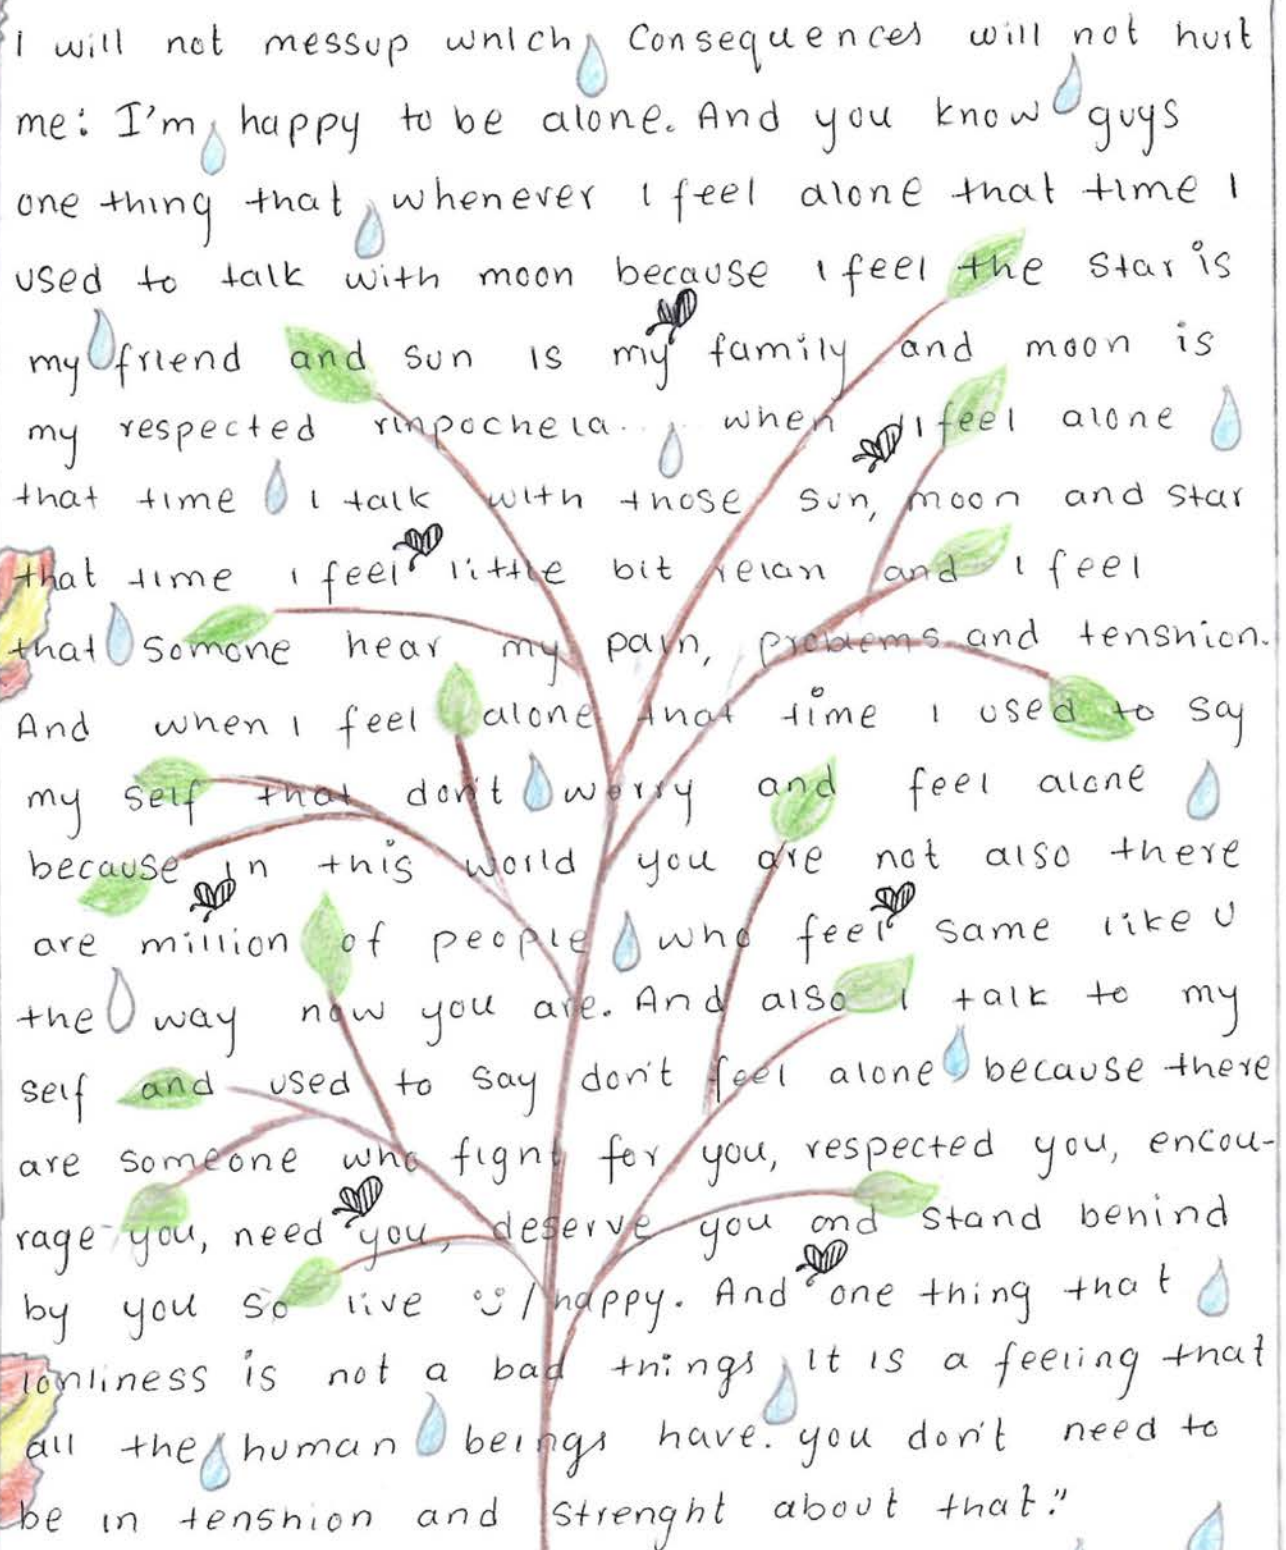 I will not messup which, Consequences will not hurt
me: I'm, happy to be alone. And you know guys
one thing that, whenever I feel alone that time I
used to talk with moon because I feel the star is
my friend and sun is my family and moon is
my respected rinpochela... when I feel alone
that time I talk with those sun, moon and star
that time I feel little bit relan and I feel
that Somone hear my pain, problems and tenshion.
And when I feel alone that time I used to say
my self that don't worry and feel alone
because in this world you are not also there
are million of people who feel same like U
the way now you are. And also I talk to my
self and used to say don't feel alone because there
are someone who fight for you, respected you, encou-
rage you, need you, deserve you and stand behind
by you so live / happy. And one thing that
lonliness is not a bad things, It is a feeling that
all the human beings have. you don't need to
be in tenshion and strenght about that."